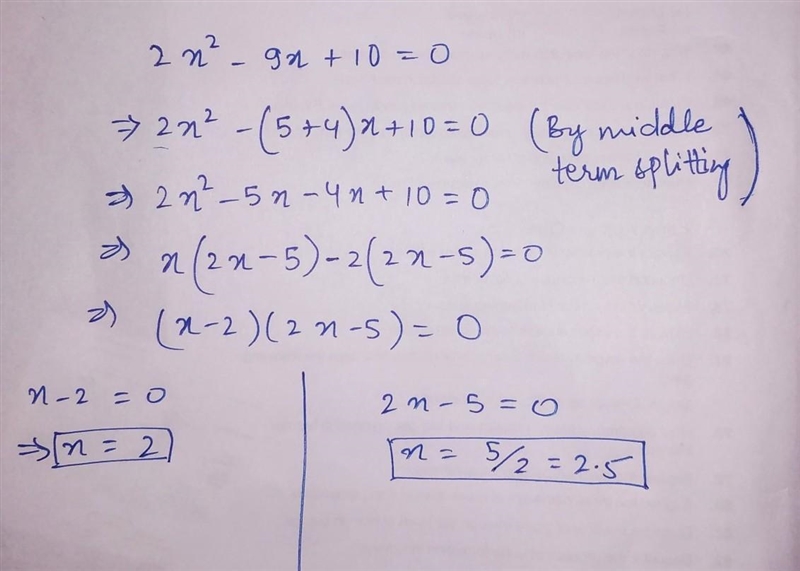 2x² - 9x + 10 = 0
⇒ 2x² - (5+4)x + 10 = 0 (By middle term splitting)
⇒ 2x² - 5x - 4x + 10 = 0
⇒ x(2x - 5) - 2(2x - 5) = 0
⇒ (x - 2)(2x - 5) = 0
x - 2 = 0
⇒ x = 2
2x - 5 = 0
x = 5/2 = 2.5